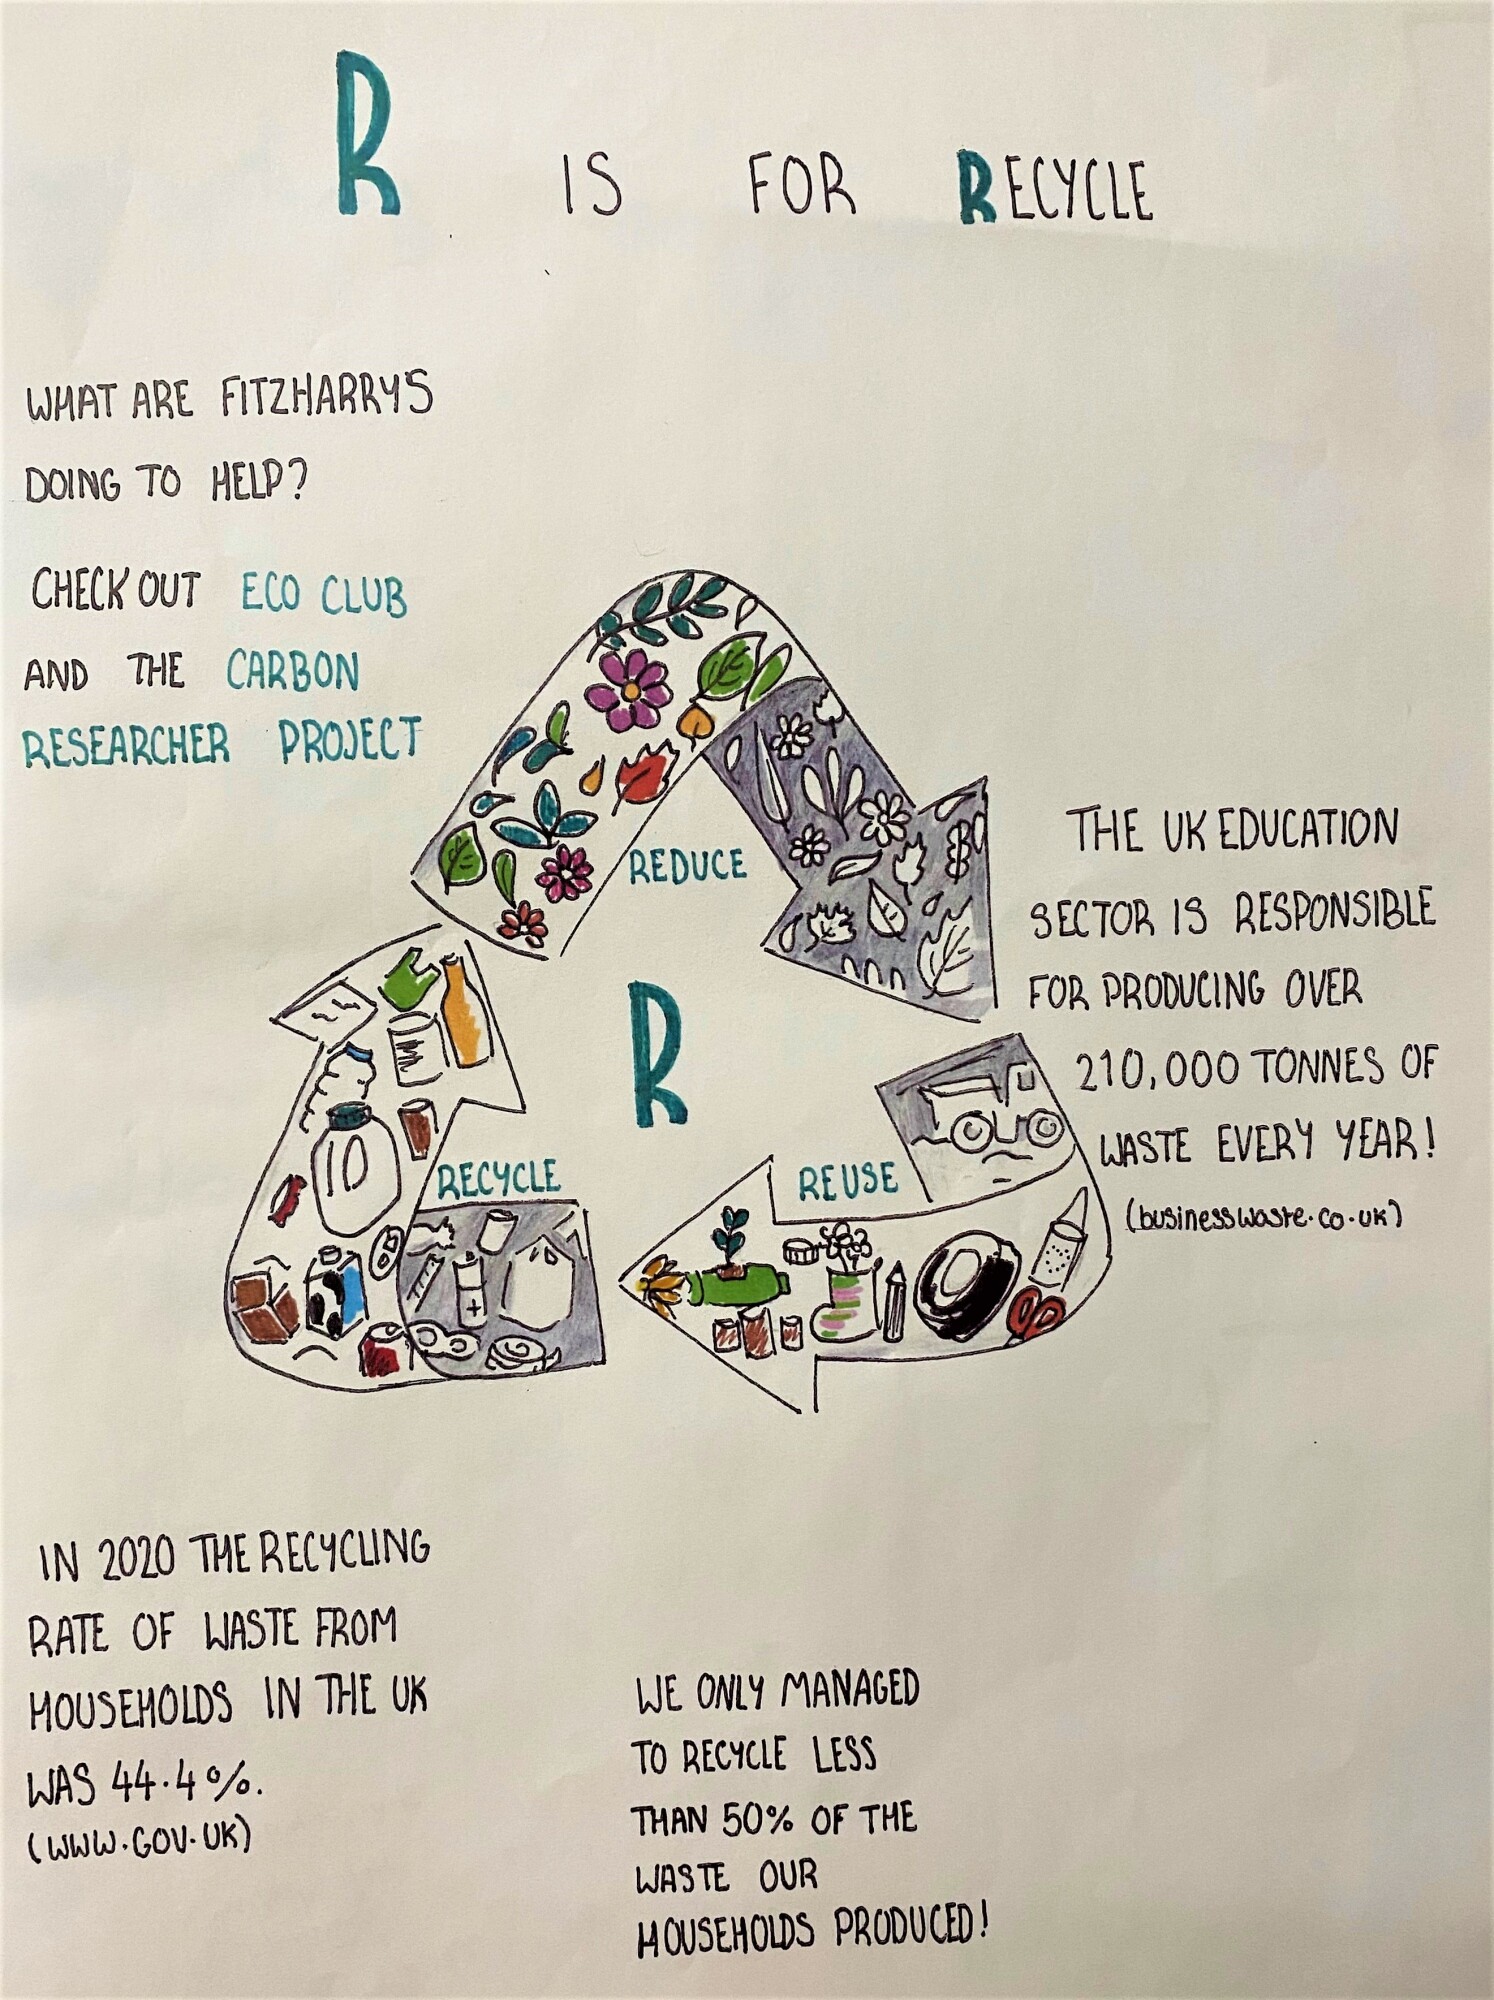 R IS FOR RECYCLE
WHAT ARE FITZHARRYS
DOING TO HELP?
CHECK OUT ECO CLUB
AND THE CARBON
RESEARCHER PROJECT
REDUCE
THE UK EDUCATION
SECTOR IS RESPONSIBLE
FOR PRODUCING OVER
210,000 TONNES OF
WASTE EVERY YEAR!
(businesswaste.co.uk)
R
RECYCLE
REUSE
IN 2020 THE RECYCLING
RATE OF WASTE FROM
HOUSEHOLDS IN THE UK
WAS 44.4%.
(WWW.GOV.UK)
WE ONLY MANAGED
TO RECYCLE LESS
THAN 50% OF THE
WASTE OUR
HOUSEHOLDS PRODUCED!